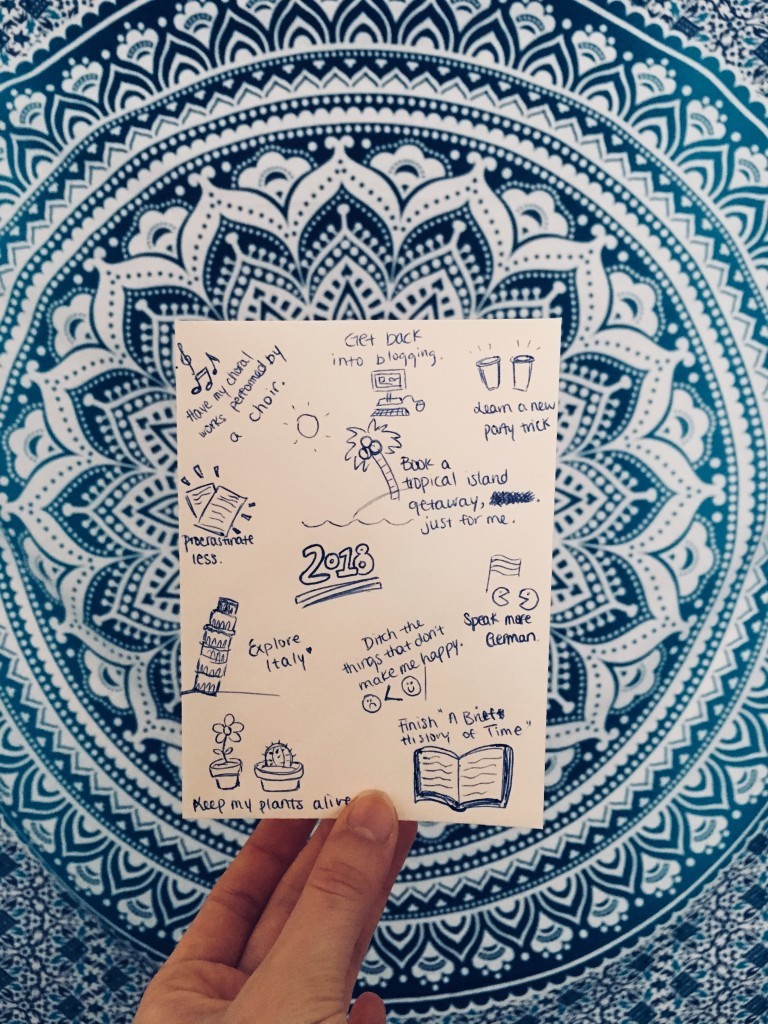 Get back
into blogging.
Have my choral
works performed by
a choir.
Learn a new
party trick
Book a
tropical island
getaway,
just for me.
Procrastinate
less.
2018
Speak more
German.
Explore
Italy
Ditch the
things that don't
make me happy.
Finish "A Brief
History of Time"
Keep my plants alive